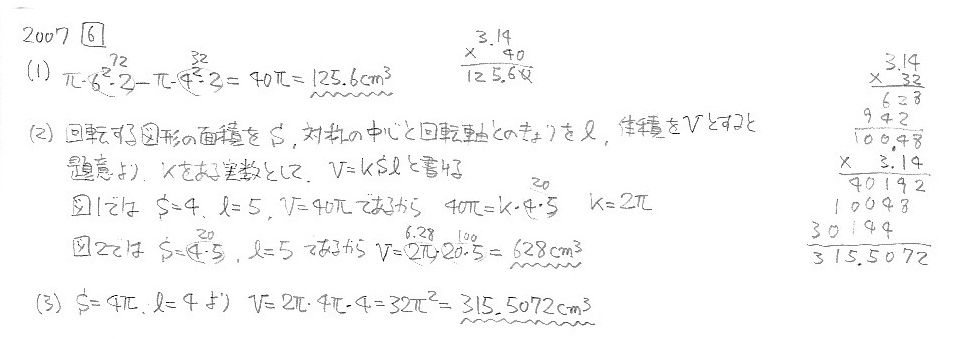 2007 6
(1) π·6²·2-π·4²·2=40π=125.6cm³
72 32
3.14
× 40
125.60
(2) 回転する図形の面積をS, 対称の中心と回転軸とのきょりをl, 体積をVとすると
題意より, kをある実数として, V=kSlと書ける
図1では S=4, l=5, V=40πであるから 40π=k·4·5 k=2π
20
図2では S=4·5, l=5 であるから V=2π·20·5=628cm³
20 6.28 100
(3) S=4π, l=4より V=2π·4π·4=32π²=315.5072cm³
3.14
× 32
628
942
100.48
× 3.14
40192
10048
30144
315.5072